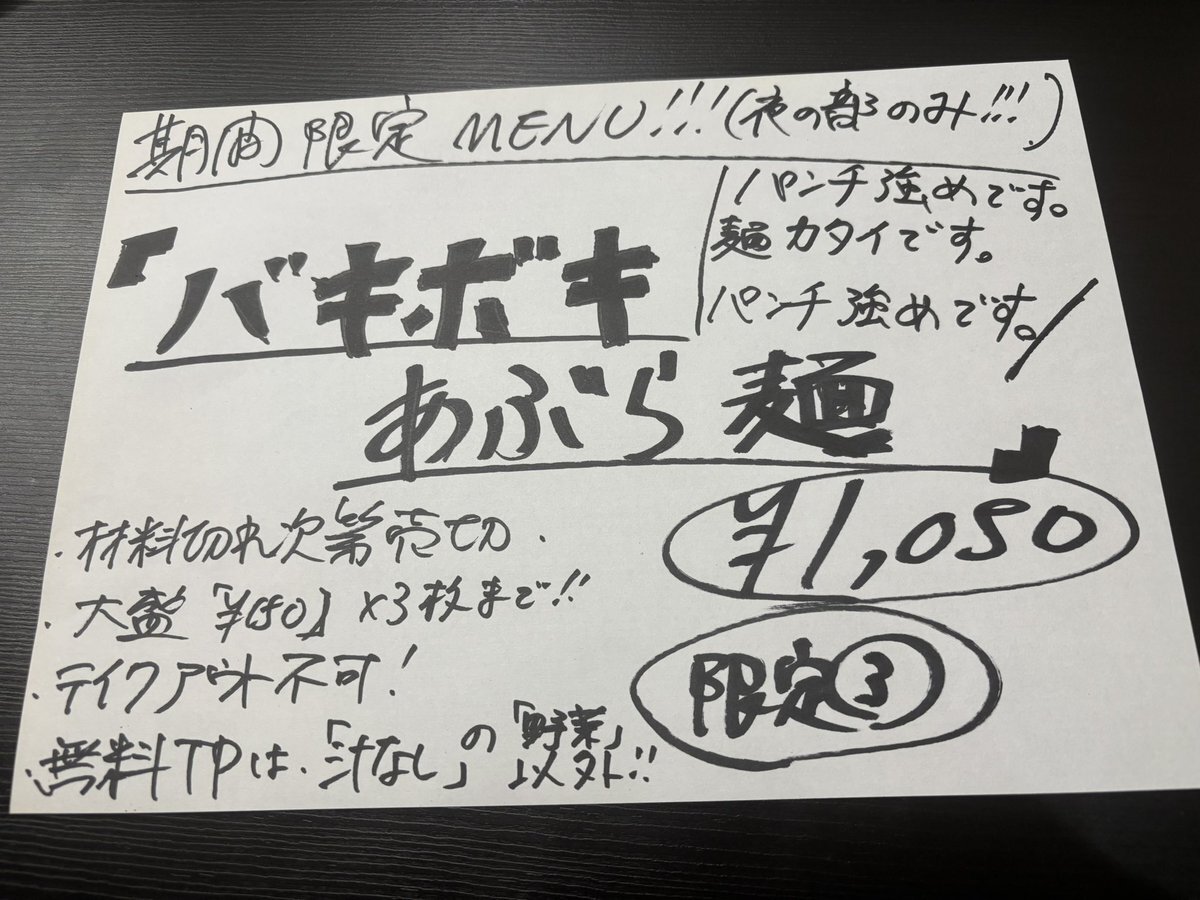 期間限定 MENU!!!(夜の部のみ!!!)
パンチ強めです。
麺カタイです。
パンチ強めです。
「バキボキ
あぶら麺」
¥1,050
・材料切れ次第売切.
・大盛「¥150」×3枚まで!!
・テイクアウト不可!
・無料TPは、「汁なし」の「野菜」以外!!
限定③